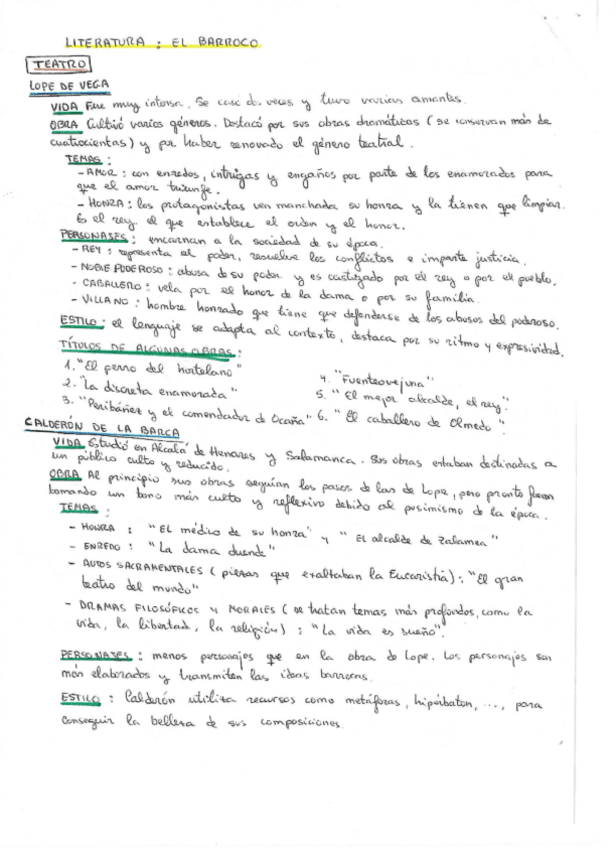 LITERATURA : EL BARROCO
TEATRO
LOPE DE VEGA
VIDA Fue muy intensa. Se casó dos veces y tuvo varias amantes.
OBRA Cultivó varios géneros. Destacó por sus obras dramáticas (se conservan más de
cuatrocientas) y por haber renovado el género teatral.
TEMAS :
- AMOR : con enredos, intrigas y engaños por parte de los enamorados para
que el amor triunfe.
- HONRA : los protagonistas ven manchada su honra y la tienen que limpiar.
Es el rey el que establece el orden y el honor.
PERSONAJES : encarnan a la sociedad de su época.
- REY : representa el poder, resuelve los conflictos e imparte justicia.
- NOBLE PODEROSO : abusa de su poder y es castigado por el rey o por el pueblo.
- CABALLERO : vela por el honor de la dama o por su familia.
- VILLANO : hombre honrado que tiene que defenderse de los abusos del poderoso.
ESTILO : el lenguaje se adapta al contexto, destaca por su ritmo y expresividad.
TÍTULOS DE ALGUNAS OBRAS :
1. "El perro del hortelano"
2. "La discreta enamorada"
3. "Peribáñez y el comendador de Ocaña"
4. "Fuenteovejuna"
5. "El mejor alcalde, el rey."
6. "El caballero de Olmedo".
CALDERÓN DE LA BARCA
VIDA Estudió en Alcalá de Henares y Salamanca. Sus obras estaban destinadas a
un público culto y reducido.
OBRA Al principio sus obras seguían los pasos de las de Lope, pero pronto fueron
tomando un tono más culto y reflexivo debido al pesimismo de la época.
TEMAS :
- HONRA : "El médico de su honra" y "El alcalde de Zalamea"
- ENREDO : "La dama duende"
- AUTOS SACRAMENTALES (piezas que exaltaban la Eucaristía) : "El gran
teatro del mundo"
- DRAMAS FILOSÓFICOS Y MORALES (se tratan temas más profundos, como la
vida, la libertad, la religión) : "La vida es sueño".
PERSONAJES : menos personajes que en la obra de Lope. Los personajes son
más elaborados y transmiten las ideas barrocas.
ESTILO : Calderón utiliza recursos como metáforas, hipérbaton, ..., para
conseguir la belleza de sus composiciones.